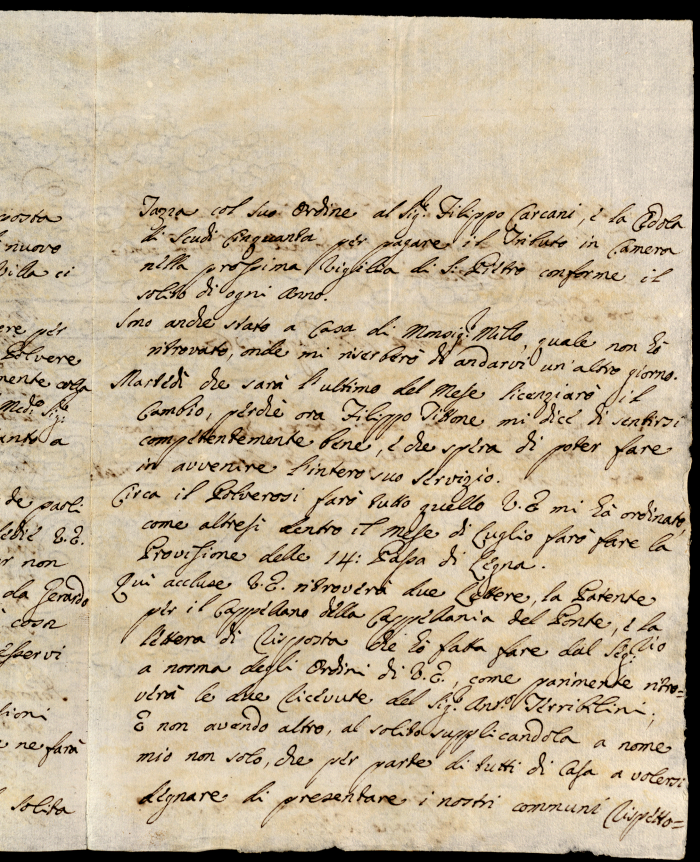 posta
nuovo
Villa ci
ere per
Polvere
mente
Med.º Sig.re
anto a
de parti
V.E.
r non
da Gerardo
cosa
Esservi
sioni
e ne farà
solita
Tazza col suo Ordine al Sig.r Filippo Carcani, e la Cedola
di Scudi Cinquanta per pagare il Tributo in Camera
nella prossima Vigilia di S. Pietro conforme il
solito di ogni Anno.
Sono anche stato a Casa di Monsig.r Millo, quale non hò
ritrovato, onde mi riserberò di andarvi un'altro giorno.
Martedì che sarà l'ultimo del Mese licenziarò il
Cambio, perchè ora Filippo Tittone mi dice di sentirsi
competentemente bene, e che spera di poter fare
in avvenire l'intero suo servizio.
Circa il Polverosi farò tutto quello V.E. mi hà ordinato,
come altresì dentro il Mese di Luglio farò fare la
Provisione delle 14: Passa di Legna.
Quì accluse V.E. ritroverà due Lettere, la Patente
per il Cappellano della Cappellania del Ponte, e la
lettera di Risposta che hò fatta fare dal
a norma degli Ordini di V.E., come parimente ritro=
verà le due Ricevute del Sig.r Ant.º Terribilini;
E non avendo altro, al solito supplicandola a nome
mio non solo, che per parte di tutti di Casa a volersi
degnare di presentare i nostri communi Rispetto=